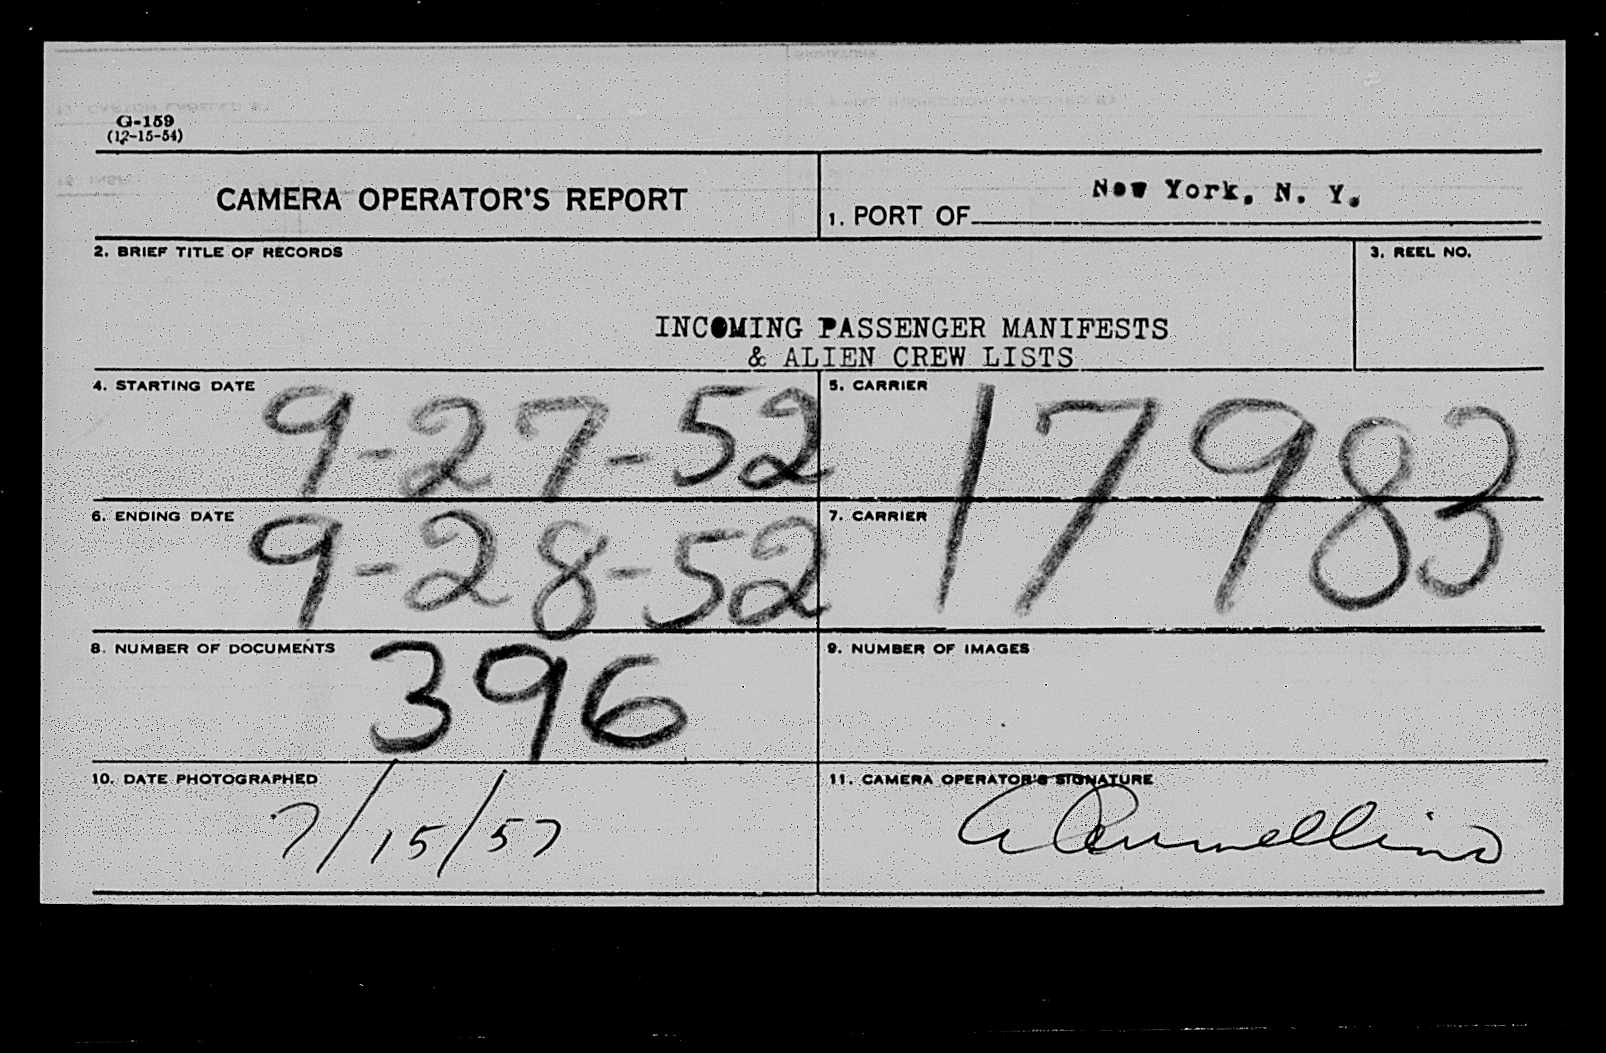 G-159
(12-15-54)
CAMERA OPERATOR'S REPORT
1. PORT OF New York, N. Y.
2. BRIEF TITLE OF RECORDS
3. REEL NO.
INCOMING PASSENGER MANIFESTS
& ALIEN CREW LISTS
4. STARTING DATE 9-27-52
5. CARRIER
17983
6. ENDING DATE 9-28-52
7. CARRIER
8. NUMBER OF DOCUMENTS 396
9. NUMBER OF IMAGES
10. DATE PHOTOGRAPHED
7/15/57
11. CAMERA OPERATOR'S SIGNATURE